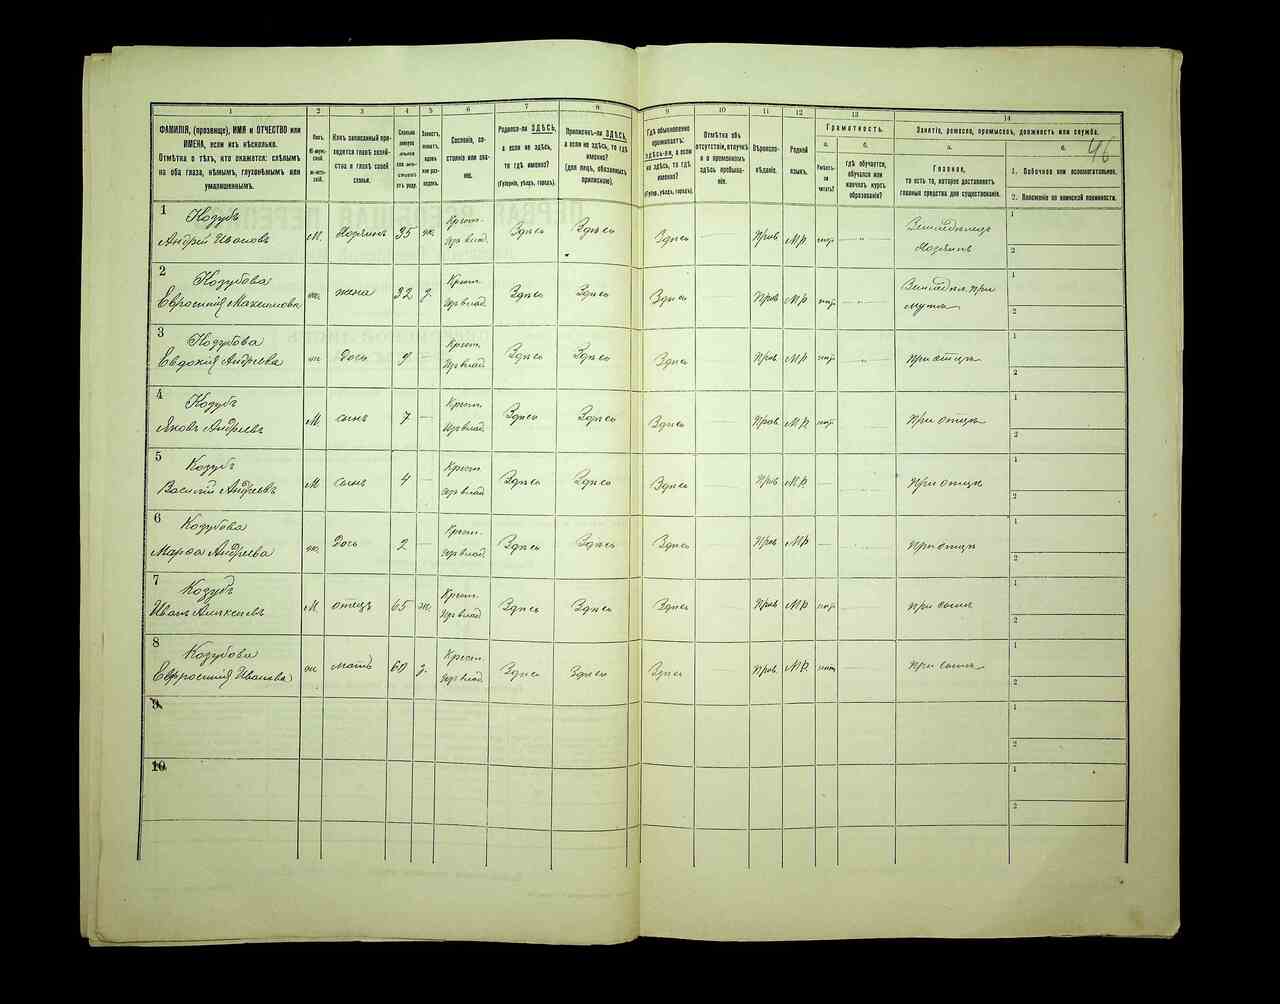 1
2
3
4
5
6
7
8
9
10
11
12
13
14
ФАМИЛІЯ, (прозвище), ИМЯ и ОТЧЕСТВО или
ИМЕНА, если ихъ нѣсколько.
Отмѣтка о тѣхъ, кто окажется: слѣпымъ
на оба глаза, нѣмымъ, глухонѣмымъ или
умалишеннымъ.
Полъ.
М-муж-
ской.
Ж-жен-
скій.
Какъ записанный при-
ходится главѣ хозяй-
ства и главѣ своей
семьи.
Сколько
минуло
лѣтъ
Холостъ,
женатъ,
вдовъ
или раз-
веденъ.
Сословіе, со-
стояніе или зва-
ніе.
Родился-ли ЗДѢСЬ,
а если не здѣсь,
то гдѣ именно?
(Губернія, уѣздъ, городъ).
Приписанъ-ли ЗДѢСЬ,
а если не здѣсь, то гдѣ
именно?
(для лицъ, обязанныхъ
припискою).
Гдѣ обыкновенно
проживаетъ:
ЗДѢСЬ-ли, а если
не здѣсь, то гдѣ
именно?
(Губер., уѣздъ, городъ).
Отмѣтка объ
отсутствіи, отлучкѣ
и о временномъ
здѣсь пребыва-
ніи.
Вѣроиспо-
вѣданіе.
Родной
языкъ.
Грамотность.
а.
б.
Умѣетъ-
ли
читать?
гдѣ обучается,
обучался или
кончилъ курсъ
образованія?
Занятіе, ремесло, промыселъ, должность или служба.
а.
б.
Главное,
то есть то, которое доставляетъ
главныя средства для существованія.
1. Побочное или вспомогательное.
2. Положеніе по воинской повинности.
46
1 Козубъ
Андрій Ивановъ М. Хозяинъ 35 ж. Крест. Здѣсь Здѣсь Здѣсь Прав МР. Земледѣлецъ
Хозяинъ 1
2
2 Козубова
Евросинія Максимова ж. жена 32 з. Крест. Здѣсь Здѣсь Здѣсь Прав МР Земледѣл. при
мужѣ 1
2
3 Козубова
Евдокія Андрѣева ж дочь 9 Крест. Здѣсь Здѣсь Здѣсь Прав МР При отцѣ 1
2
4 Козубъ
Яковъ Андрѣевъ М. сынъ 7 Крест. Здѣсь Здѣсь Здѣсь Прав МР. При отцѣ 1
2
5 Козубъ
Василій Андреевъ М сынъ 4 Крест. Здѣсь Здѣсь Здѣсь Прав МР. При отцѣ 1
2
6 Козубова
Марфа Андрѣева ж. дочь 2 Крест. Здѣсь Здѣсь Здѣсь Прав МР При отцѣ 1
2
7 Козубъ
Иванъ Алексѣевъ М. отецъ 65 ж. Крест. Здѣсь Здѣсь Здѣсь Прав МР. при сынѣ 1
2
8 Козубова
Евфросинія Иванова ж мать 60 з. Крест. Здѣсь Здѣсь Здѣсь Прав. МР. При сынѣ 1
2
9 1
2
10 1
2